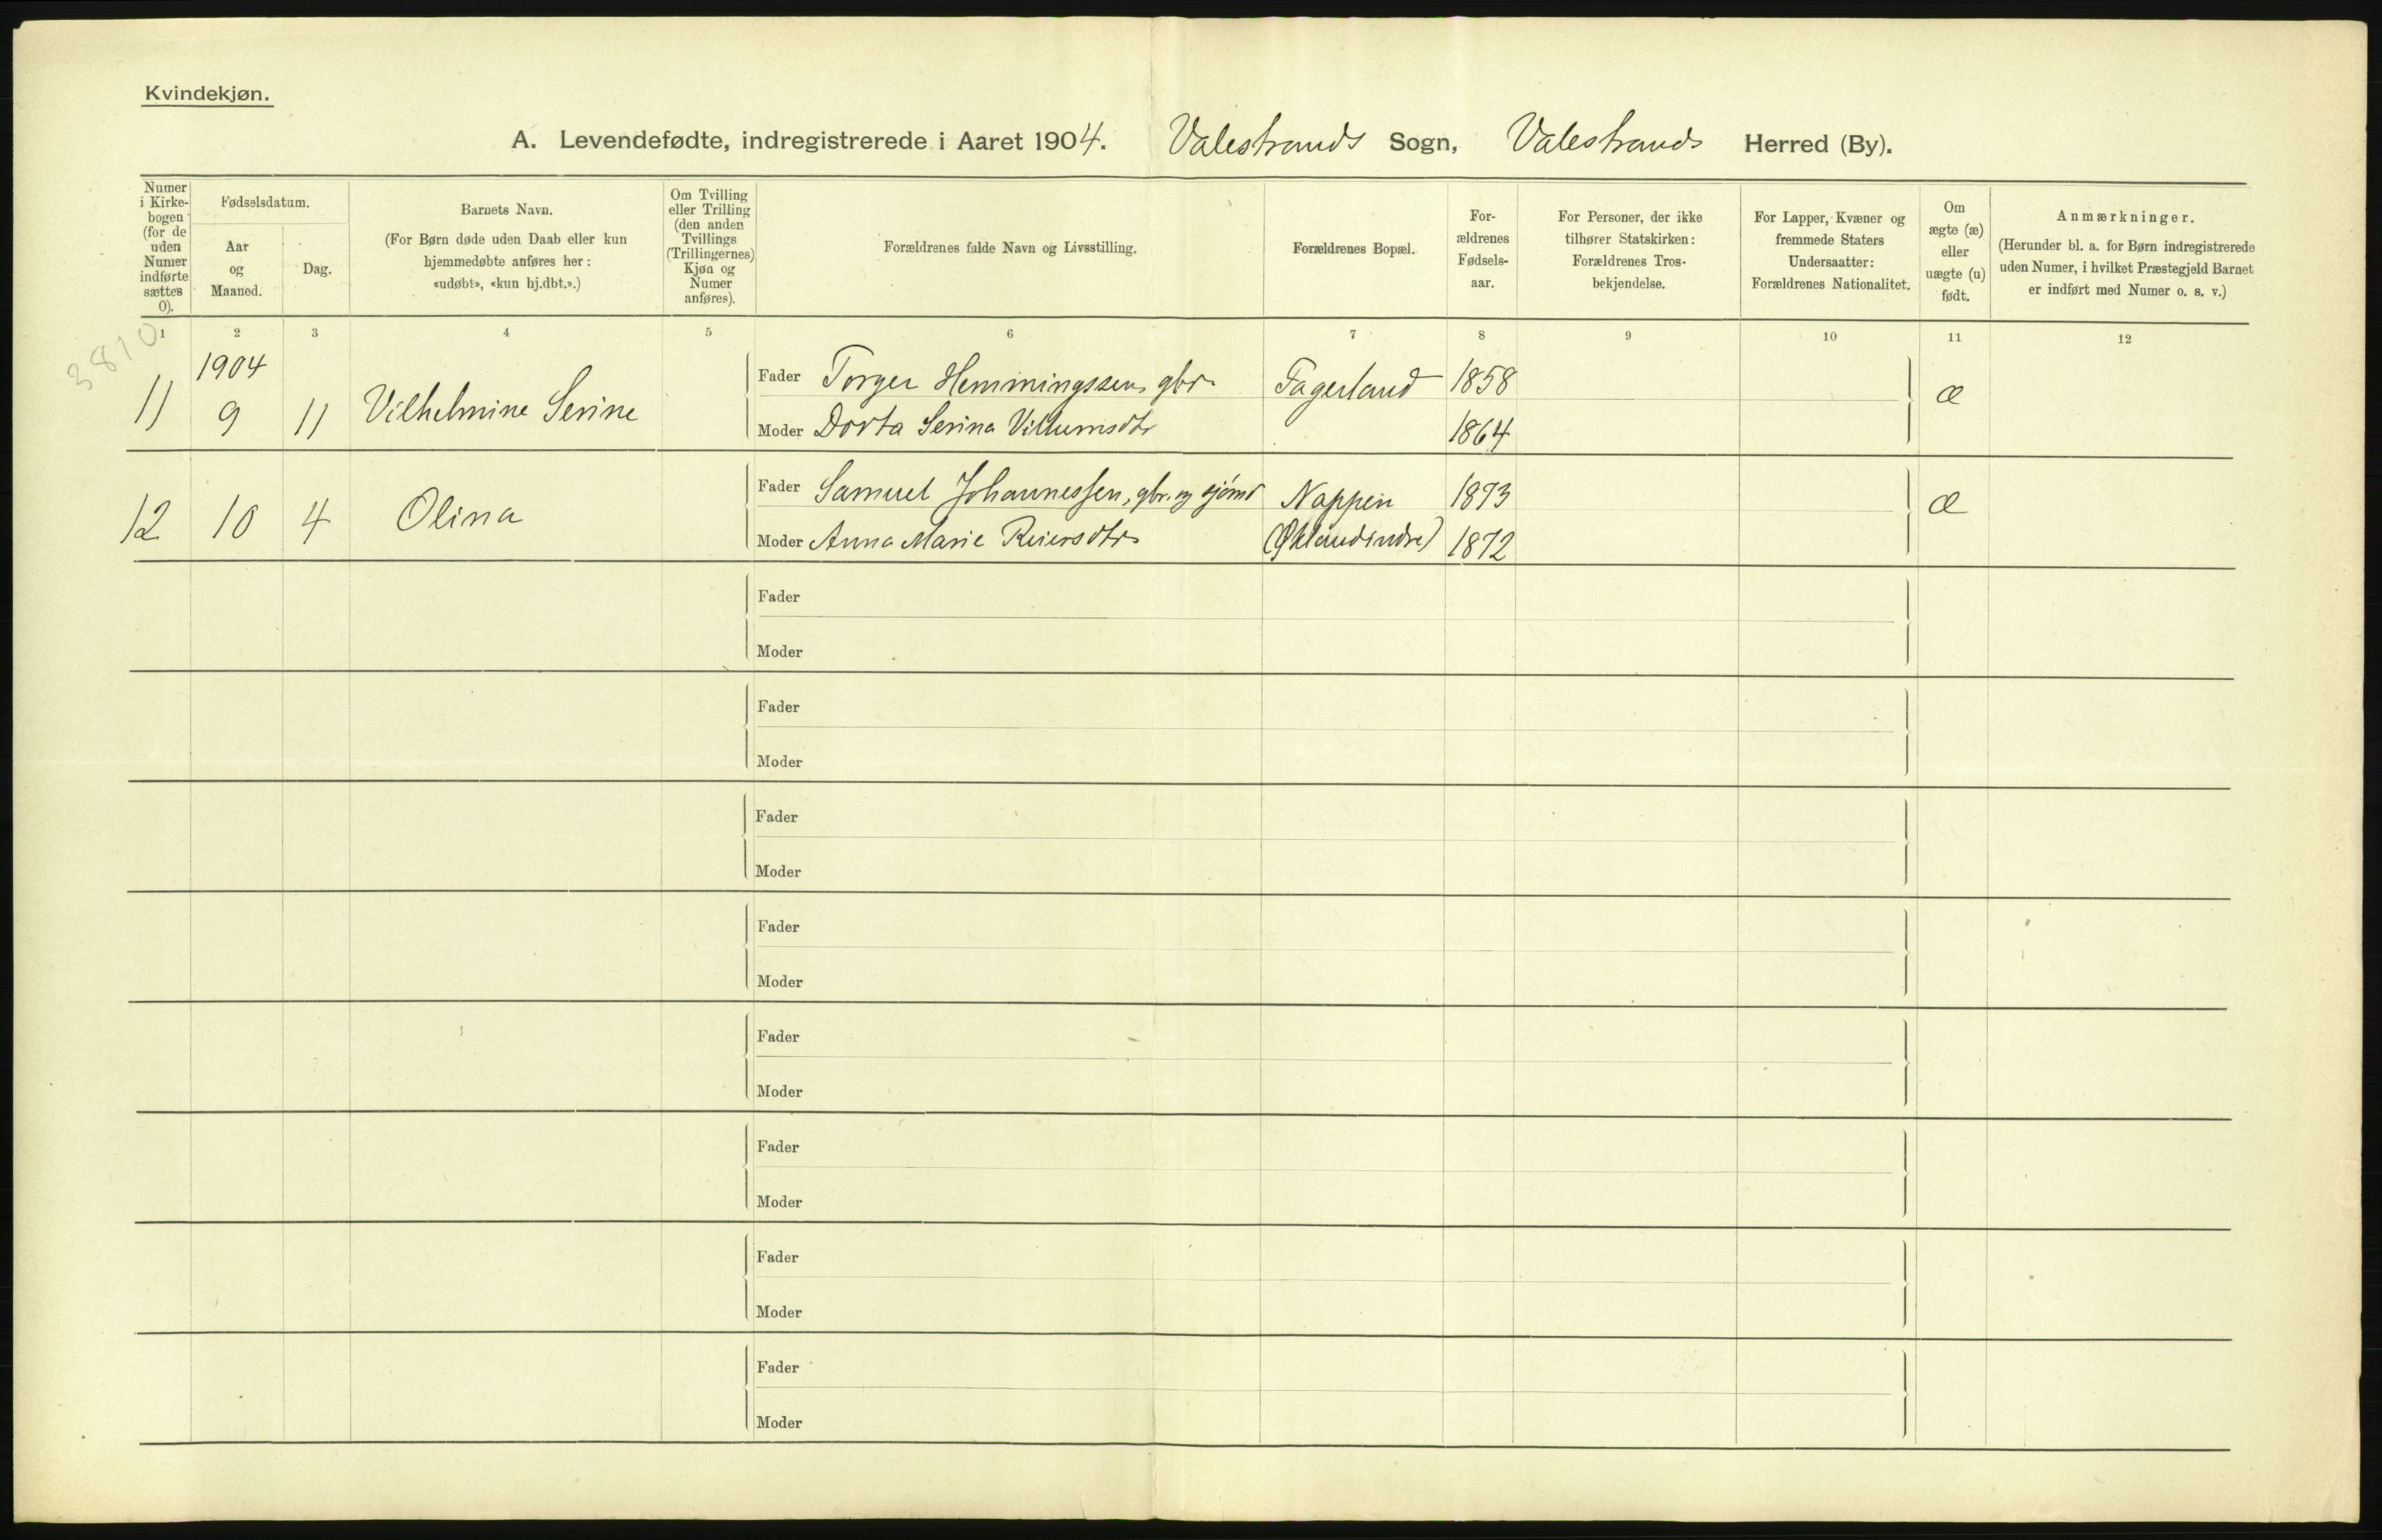 Kvindekjøn.
A. Levendefødte, indregistrerede i Aaret 1904. Valestrands Sogn, Valestrands Herred (By).
Numer i Kirkebogen (for de uden Numer indførte sættes 0).
Fødselsdatum.
Aar og Maaned.
Dag.
Barnets Navn.
(For Børn døde uden Daab eller kun
hjemmedøbte anføres her:
«udøbt», «kun hj.dbt.».)
Om Tvilling
eller Trilling
(den anden
Tvillings
(Trillingernes)
Kjøn og
Numer
anføres).
Forældrenes fulde Navn og Livsstilling.
Forældrenes Bopæl.
For-
ældrenes
Fødsels-
aar.
For Personer, der ikke
tilhører Statskirken:
Forældrenes Tros-
bekjendelse.
For Lapper, Kvæner og
fremmede Staters
Undersaatter:
Forældrenes Nationalitet.
Om
ægte (æ)
eller
uægte (u)
født.
Anmærkninger.
(Herunder bl. a. for Børn indregistrerede
uden Numer, i hvilket Præstegjeld Barnet
er indført med Numer o. s. v.)
1 2 3 4 5 6 7 8 9 10 11 12
3810
1904
11 9 11 Vilhelmine Serine Fader Torger Hemmingssen, gbr. Fagerland 1858 æ
Moder Dorta Serina Villumsdtr 1864
12 10 4 Olina Fader Samuel Johannessen, gbr. og sjømd Nappen 1873 æ
Moder Anna Marie Reiersdtr (Økland indre) 1872
Fader
Moder
Fader
Moder
Fader
Moder
Fader
Moder
Fader
Moder
Fader
Moder
Fader
Moder
Fader
Moder